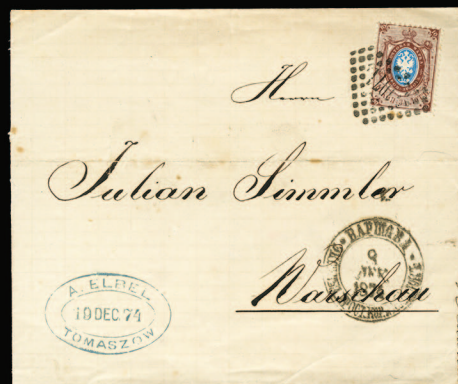 Herrn
Julian Simmler
Warschau
A. ELBEL
19 DEC. 74
TOMASZOW
ВАРШАВА